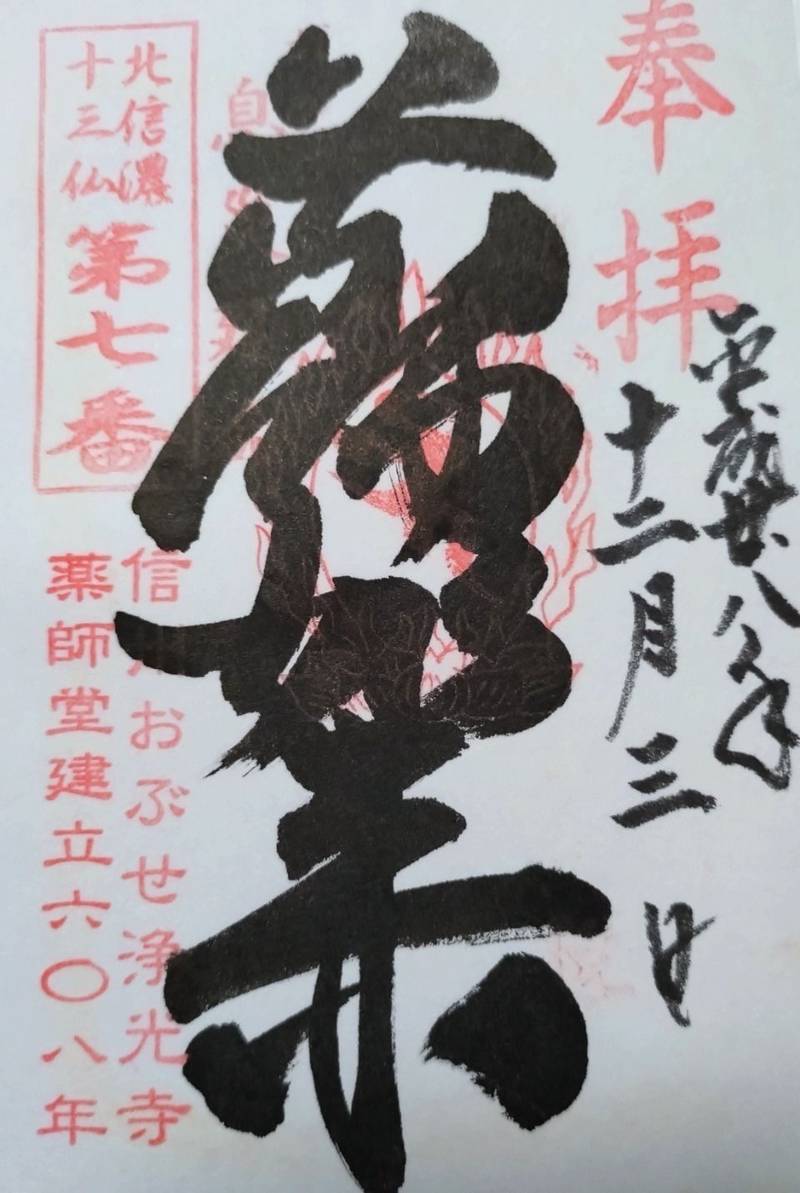 奉拝
平成廿八年
十二月三日
薬師如来
北信濃
十三仏
第七番
信州おぶせ浄光寺
薬師堂建立六〇八年